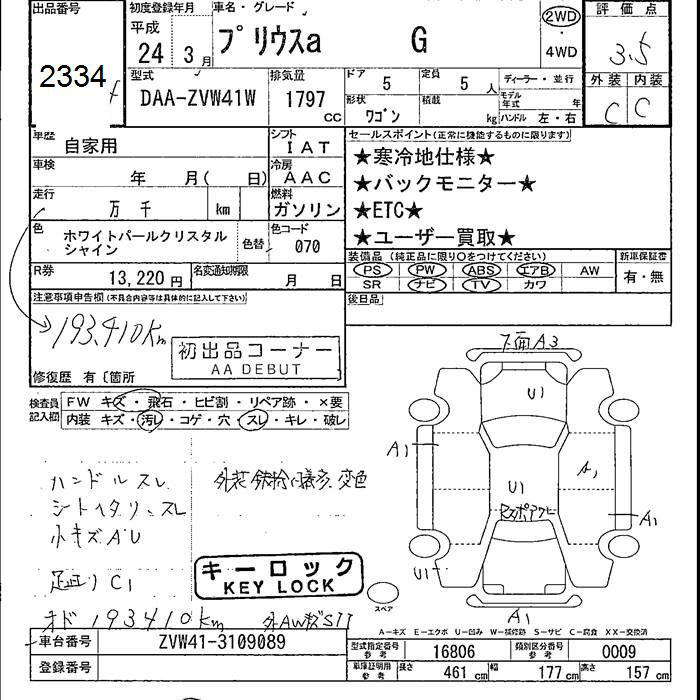 出品番号
2334
初度登録年月
平成
24 3月
車名・グレード
プリウスa G
2WD
・
4WD
評価点
3.5
型式
DAA-ZVW41W
排気量
1797 CC
ドア 5
定員 5 人
ディーラー・並行
形状 ワゴン
積載 kg
モデル年式 年
ハンドル 左・右
外装 内装
C C
車歴 自家用
シフト IAT
車検 年 月( 日)
冷房 AAC
走行 万 千 km
燃料 ガソリン
色 ホワイトパールクリスタル
シャイン
色替
色コード 070
R券 13,220円
名変通知期限 月 日
セールスポイント(正常に機能するものに限ります)
★寒冷地仕様★
★バックモニター★
★ETC★
★ユーザー買取★
装備品 (純正品に限り○をつけてください)
新車保証書
PS PW ABS エアB AW
SR ナビ TV カワ
有・無
後日品
注意事項申告欄(不具合内容等は具体的に記入して下さい)
193,410km
初出品コーナー
AA DEBUT
修復歴 有〔箇所
検査員
記入欄
FW キズ・飛石・ヒビ割・リペア跡・×要
内装 キズ・汚レ・コゲ・穴・スレ・キレ・破レ
ハンドルスレ
シートヘタリ、スレ
小キズA'U
足廻りC1
オド193410km
変色
キーロック
KEY LOCK
下面A3
U1
A1
A1
U1
A1
U1
A1
スペア
A―キズ E―エクボ U―凹み W―補修跡 S―サビ C―腐食 XX―交換済
車台番号 ZVW41-3109089
登録番号
型式指定番号
参考
16806
類別区分番号
参考
0009
車庫証明用
参考
長さ 461 cm
幅 177 cm
高さ 157 cm